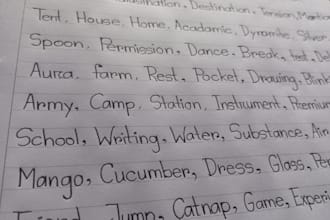 Destination, Tension,
Tent, House, Home, Acadamic, Dynamite, Silver
Spoon, Permission, Dance, Break, test,
Aura, farm, Rest, Pocket, Drawing,
Army, Camp, Station, Instrument,
School, Writing, Water, Substance,
Mango, Cucumber, Dress, Glass,
Jump, Catnap, Game,